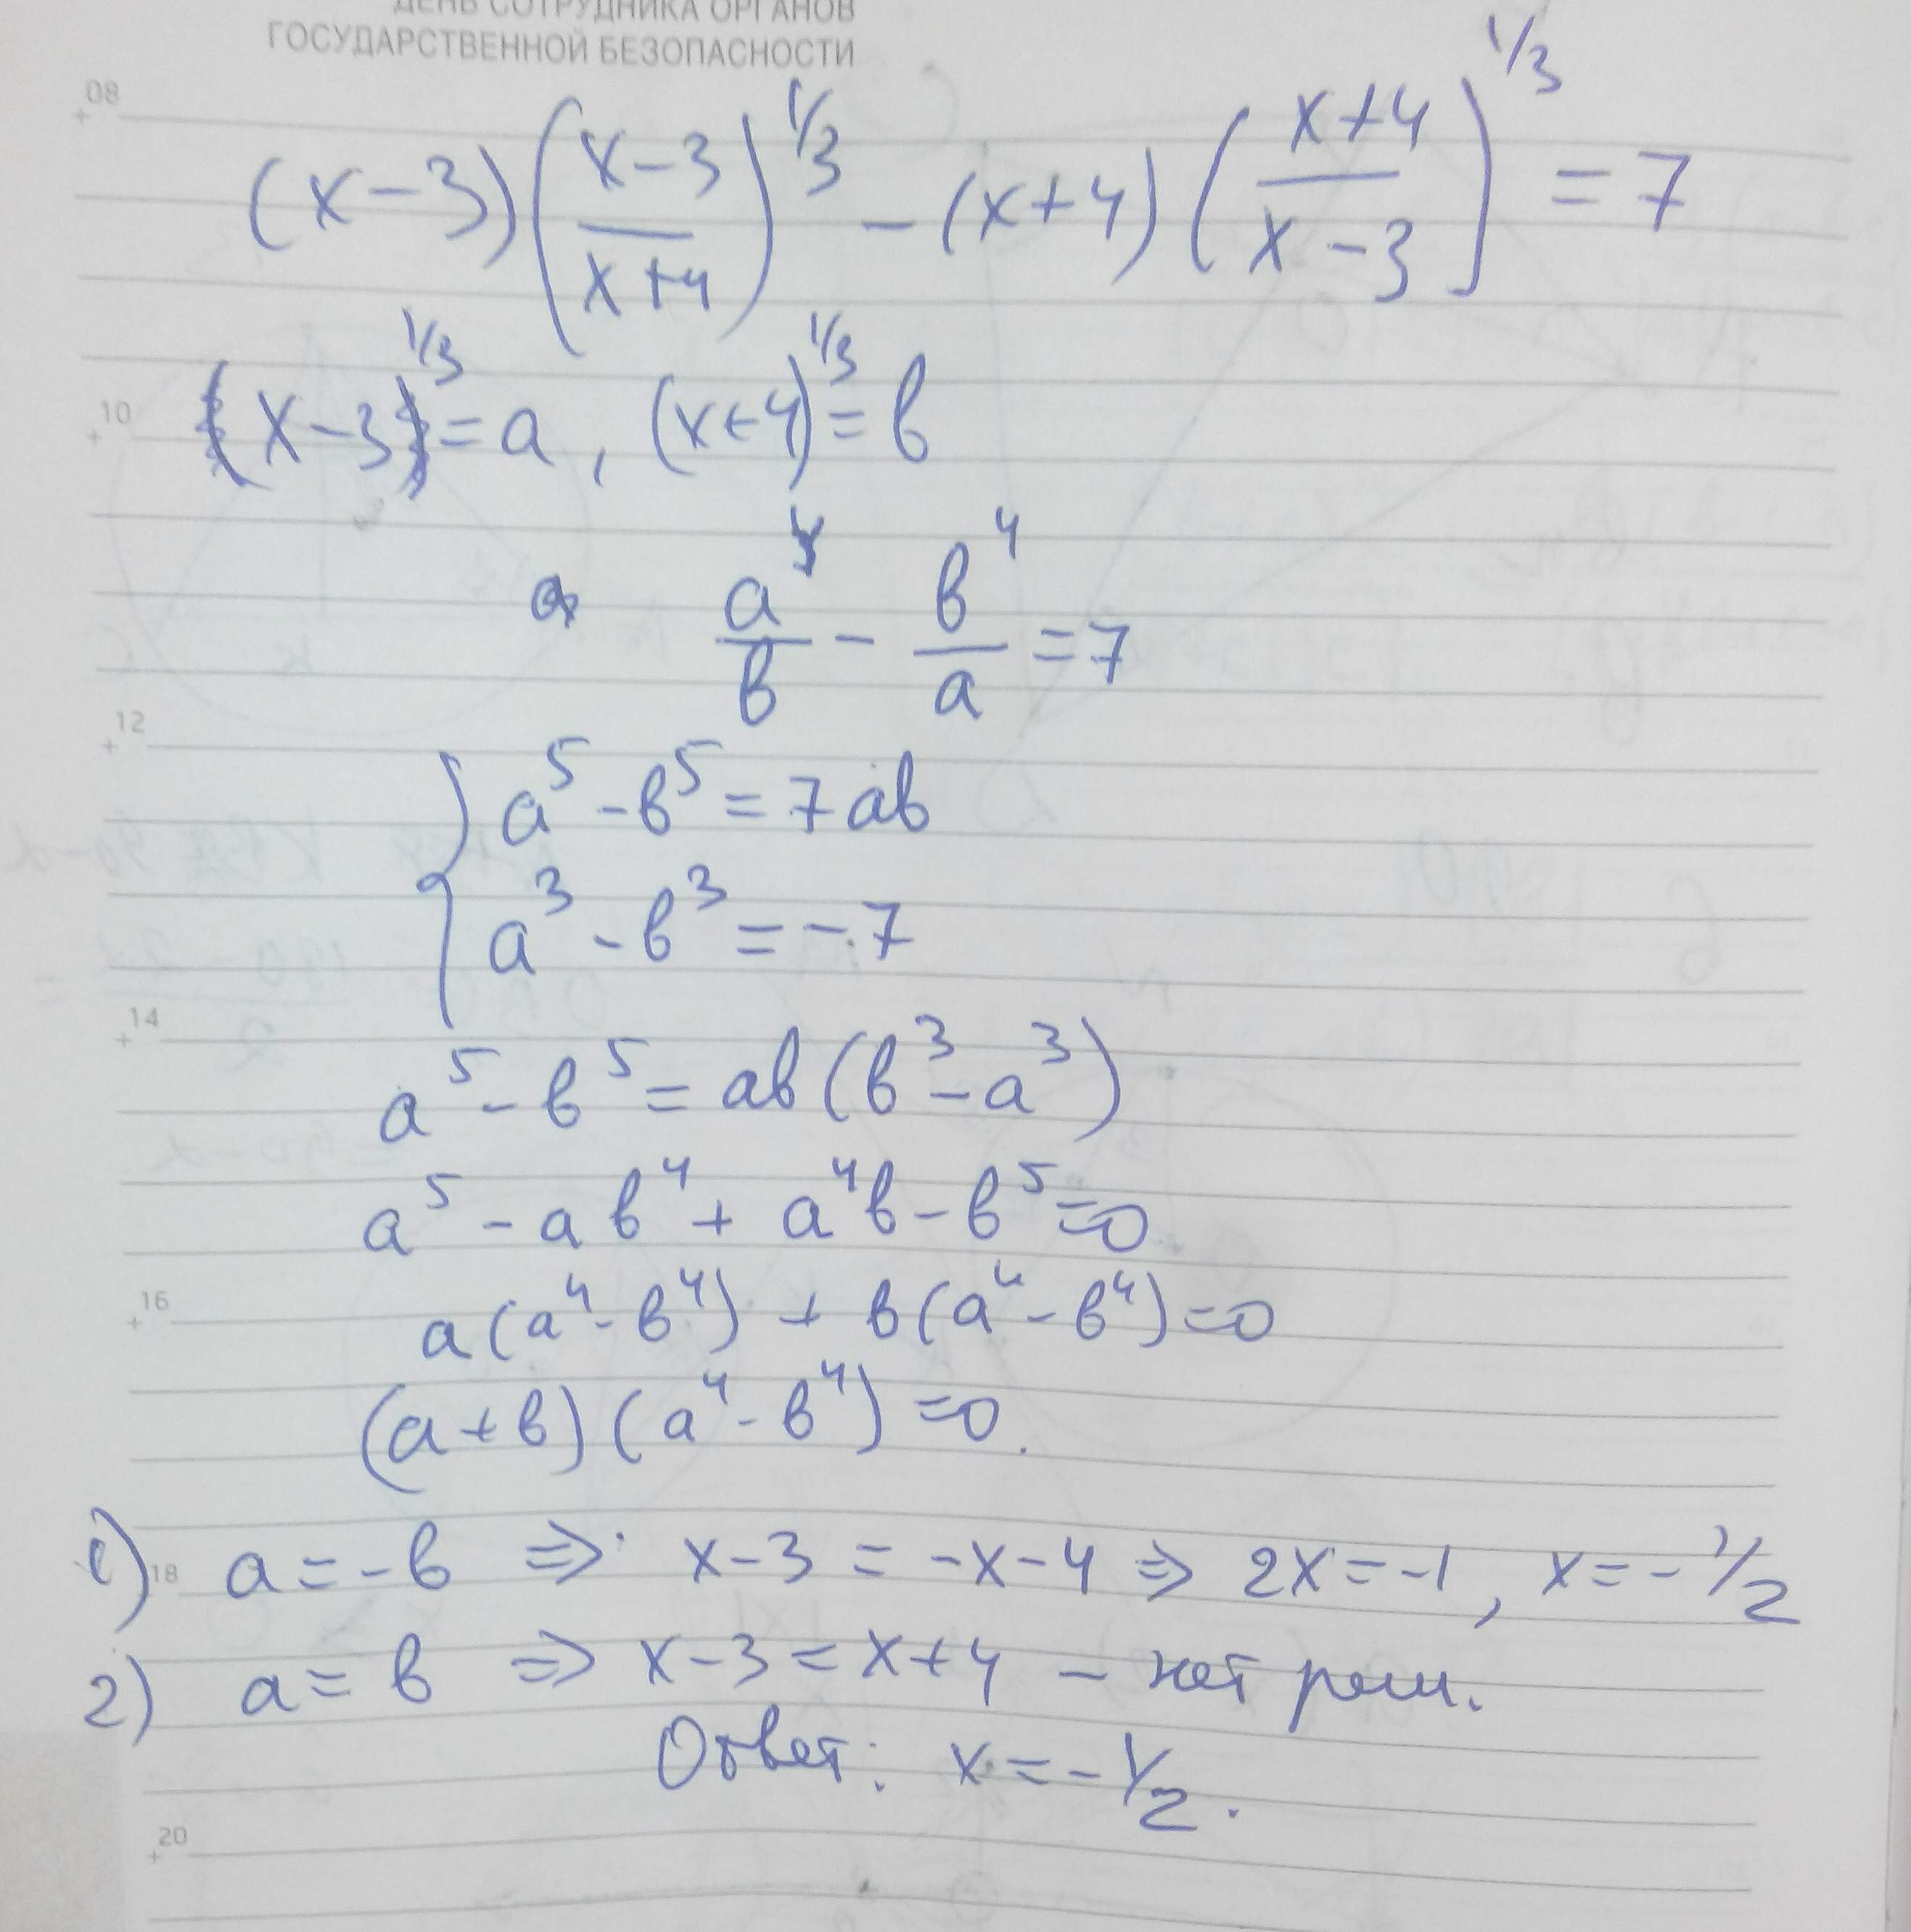 ДЕНЬ СОТРУДНИКА ОРГАНОВ
ГОСУДАРСТВЕННОЙ БЕЗОПАСНОСТИ
08
(x-3)((x-3)/(x+4))^1/3 - (x+4)((x+4)/(x-3))^1/3 = 7
10
(x-3)^1/3 = a, (x+4)^1/3 = b
a^4/b - b^4/a = 7
12
{ a^5 - b^5 = 7ab
a^3 - b^3 = -7
14
a^5 - b^5 = ab(b^3 - a^3)
a^5 - ab^4 + a^4b - b^5 = 0
16
a(a^4 - b^4) + b(a^4 - b^4) = 0
(a+b)(a^4 - b^4) = 0.
18
1) a = -b ⇒ x-3 = -x-4 ⇒ 2x = -1, x = -1/2
2) a = b ⇒ x-3 = x+4 - нет реш.
Ответ: x = -1/2.
20